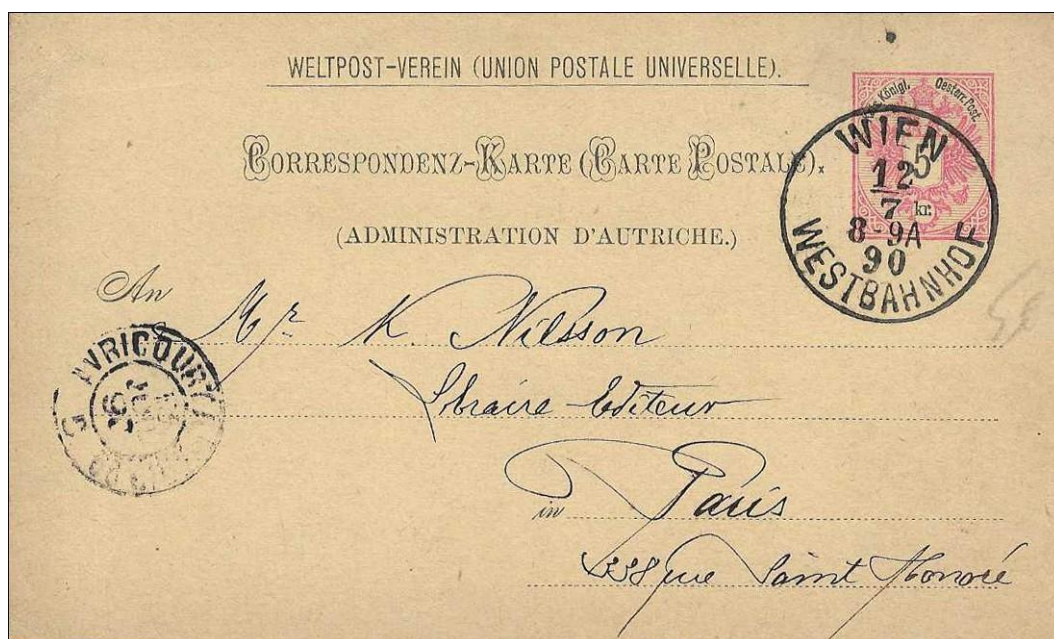 WELTPOST-VEREIN (UNION POSTALE UNIVERSELLE).
CORRESPONDENZ-KARTE (CARTE POSTALE).
(ADMINISTRATION D'AUTRICHE.)
Königl. Oesterr. Post.
5
kr.
WIEN
12
7
8-9A
90
WESTBAHNHOF
An
Mr K. Nilsson
Libraire Editeur
in Paris
338 rue Saint Honoré
AVRICOURT